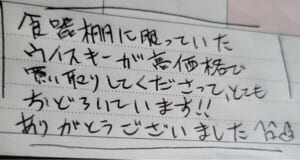 食器棚に眠っていた
ウイスキーが高価格で
買い取りしてくださって、とても
おどろいています!!
ありがとうございました